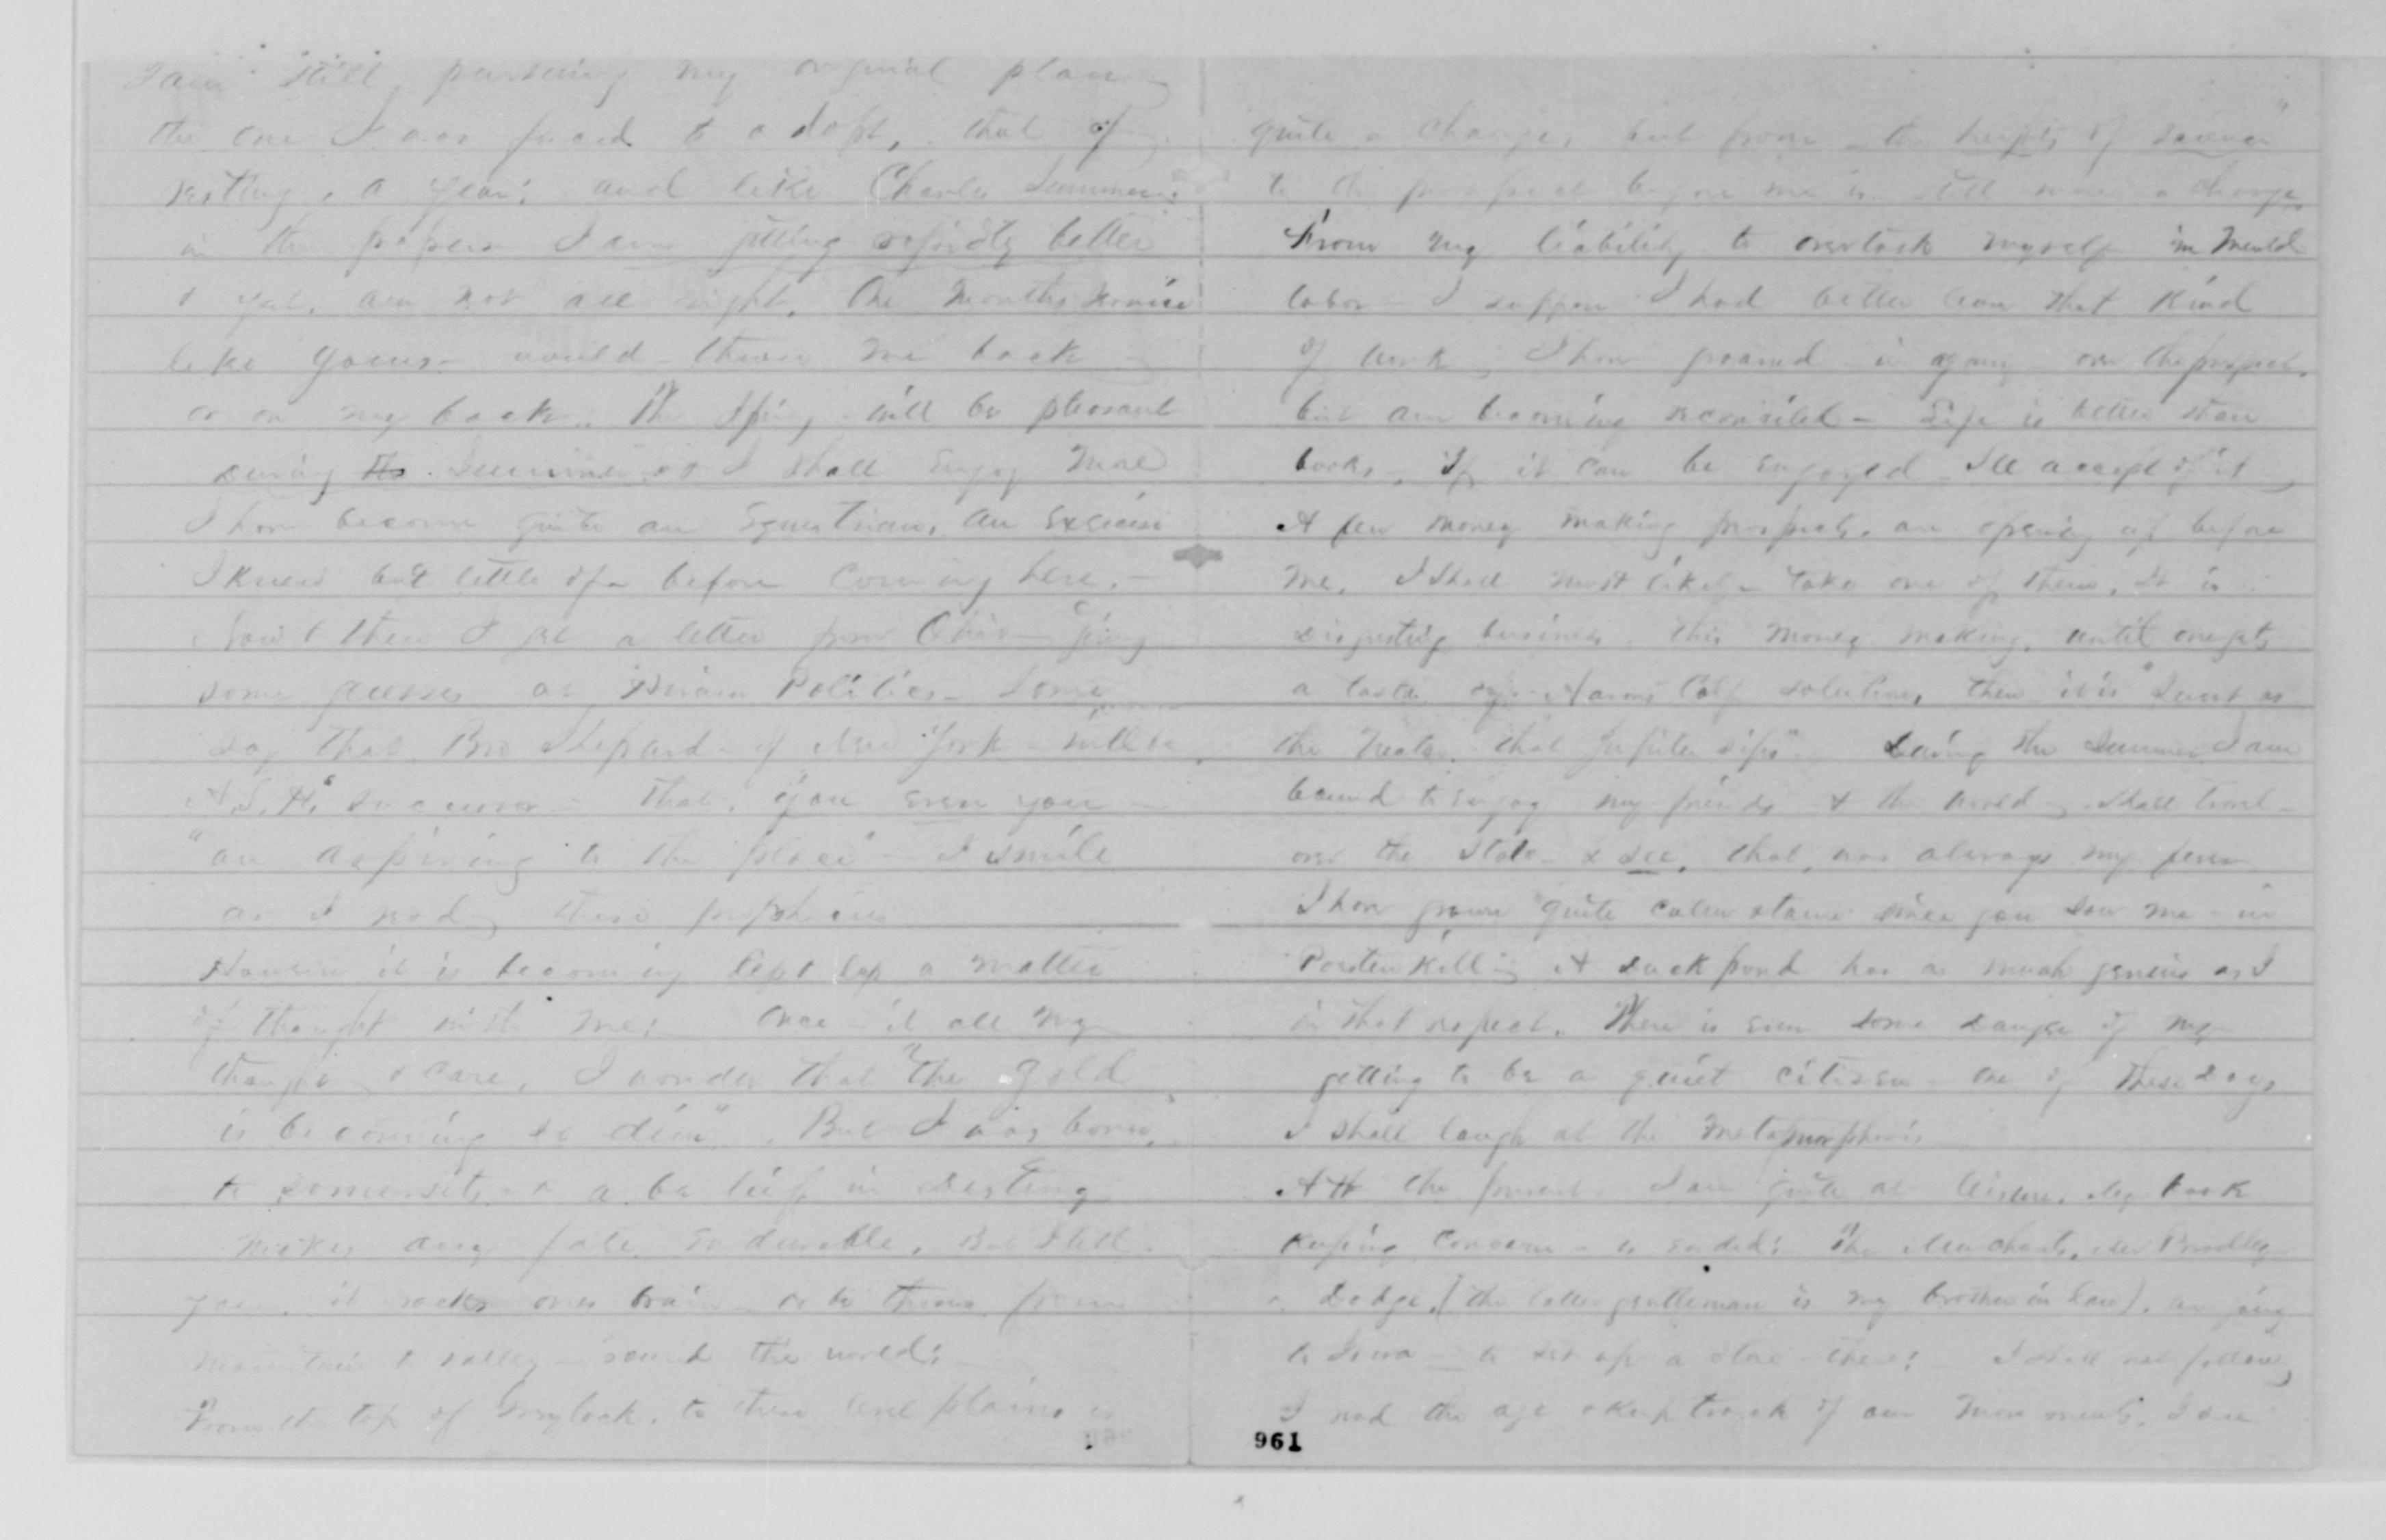 I am still pursuing my original plan
the one I was forced to adopt, that of
resting, a year: and like Charles Sumner
in the papers I am getting rapidly better
& yet, am not all right. One months
like yours - would throw me back
or on my back. The Spring will be pleasant
during the Summer I shall enjoy more
I have become quite an Equestrian, an exercise
I knew but little of before coming here. -
Now & then I get a letter from Ohio - giving
some guesses at Hiram Politics - Some
say that Bro Shepard - of New York - will be
A.S.H's successor - that, you even you -
"are aspiring to the place" - I smile
as I read these
However it is becoming less & less a matter
of thought with me: Once - it all my
thought & care, I wonder that "the gold
is becoming so dim". But I was born,
to somersets - & a belief in destiny
makes any fate endurable, But I tell
you, it racks ones brain - to be thrown from
mountain to valley - round the world:
From the top of Greylock, to these level plains is
quite a change, but from "the heights of science"
to the prospect before me is still more a change,
From my liability to overtask myself in mental
labor - I suppose I had better leave that kind
of work, I have groaned in agony over the prospect,
but am becoming reconciled - Life is better than
books, If it can be enjoyed - I'll accept of it
A few money making prospects are opening up before
me, I shall most likely take one of them, It is
disgusting business - this money making, until one gets
a taste of Aarons Calf solution, then it is "Sweet as
the Nectar that Jupiter sips" - During the Summer I am
bound to enjoy my friends & the world - Shall travel -
over the State & see, that, was always my
I have grown quite calm & tame since you saw me - in
"Poesten Kill" A duck pond has as much genius as I
in that respect. There is even some danger of my
getting to be a quiet citizen - one of these days
I shall laugh at the metamorphosis
At the present I am quite at leisure. My book
keeping concern - is ended: The Merchants, Bradley
& Dodge, (the latter gentleman is my brother in law), are going
to Iowa - to set up a store there: I shall not follow,
I read the age & keep track of our movements, I see
961